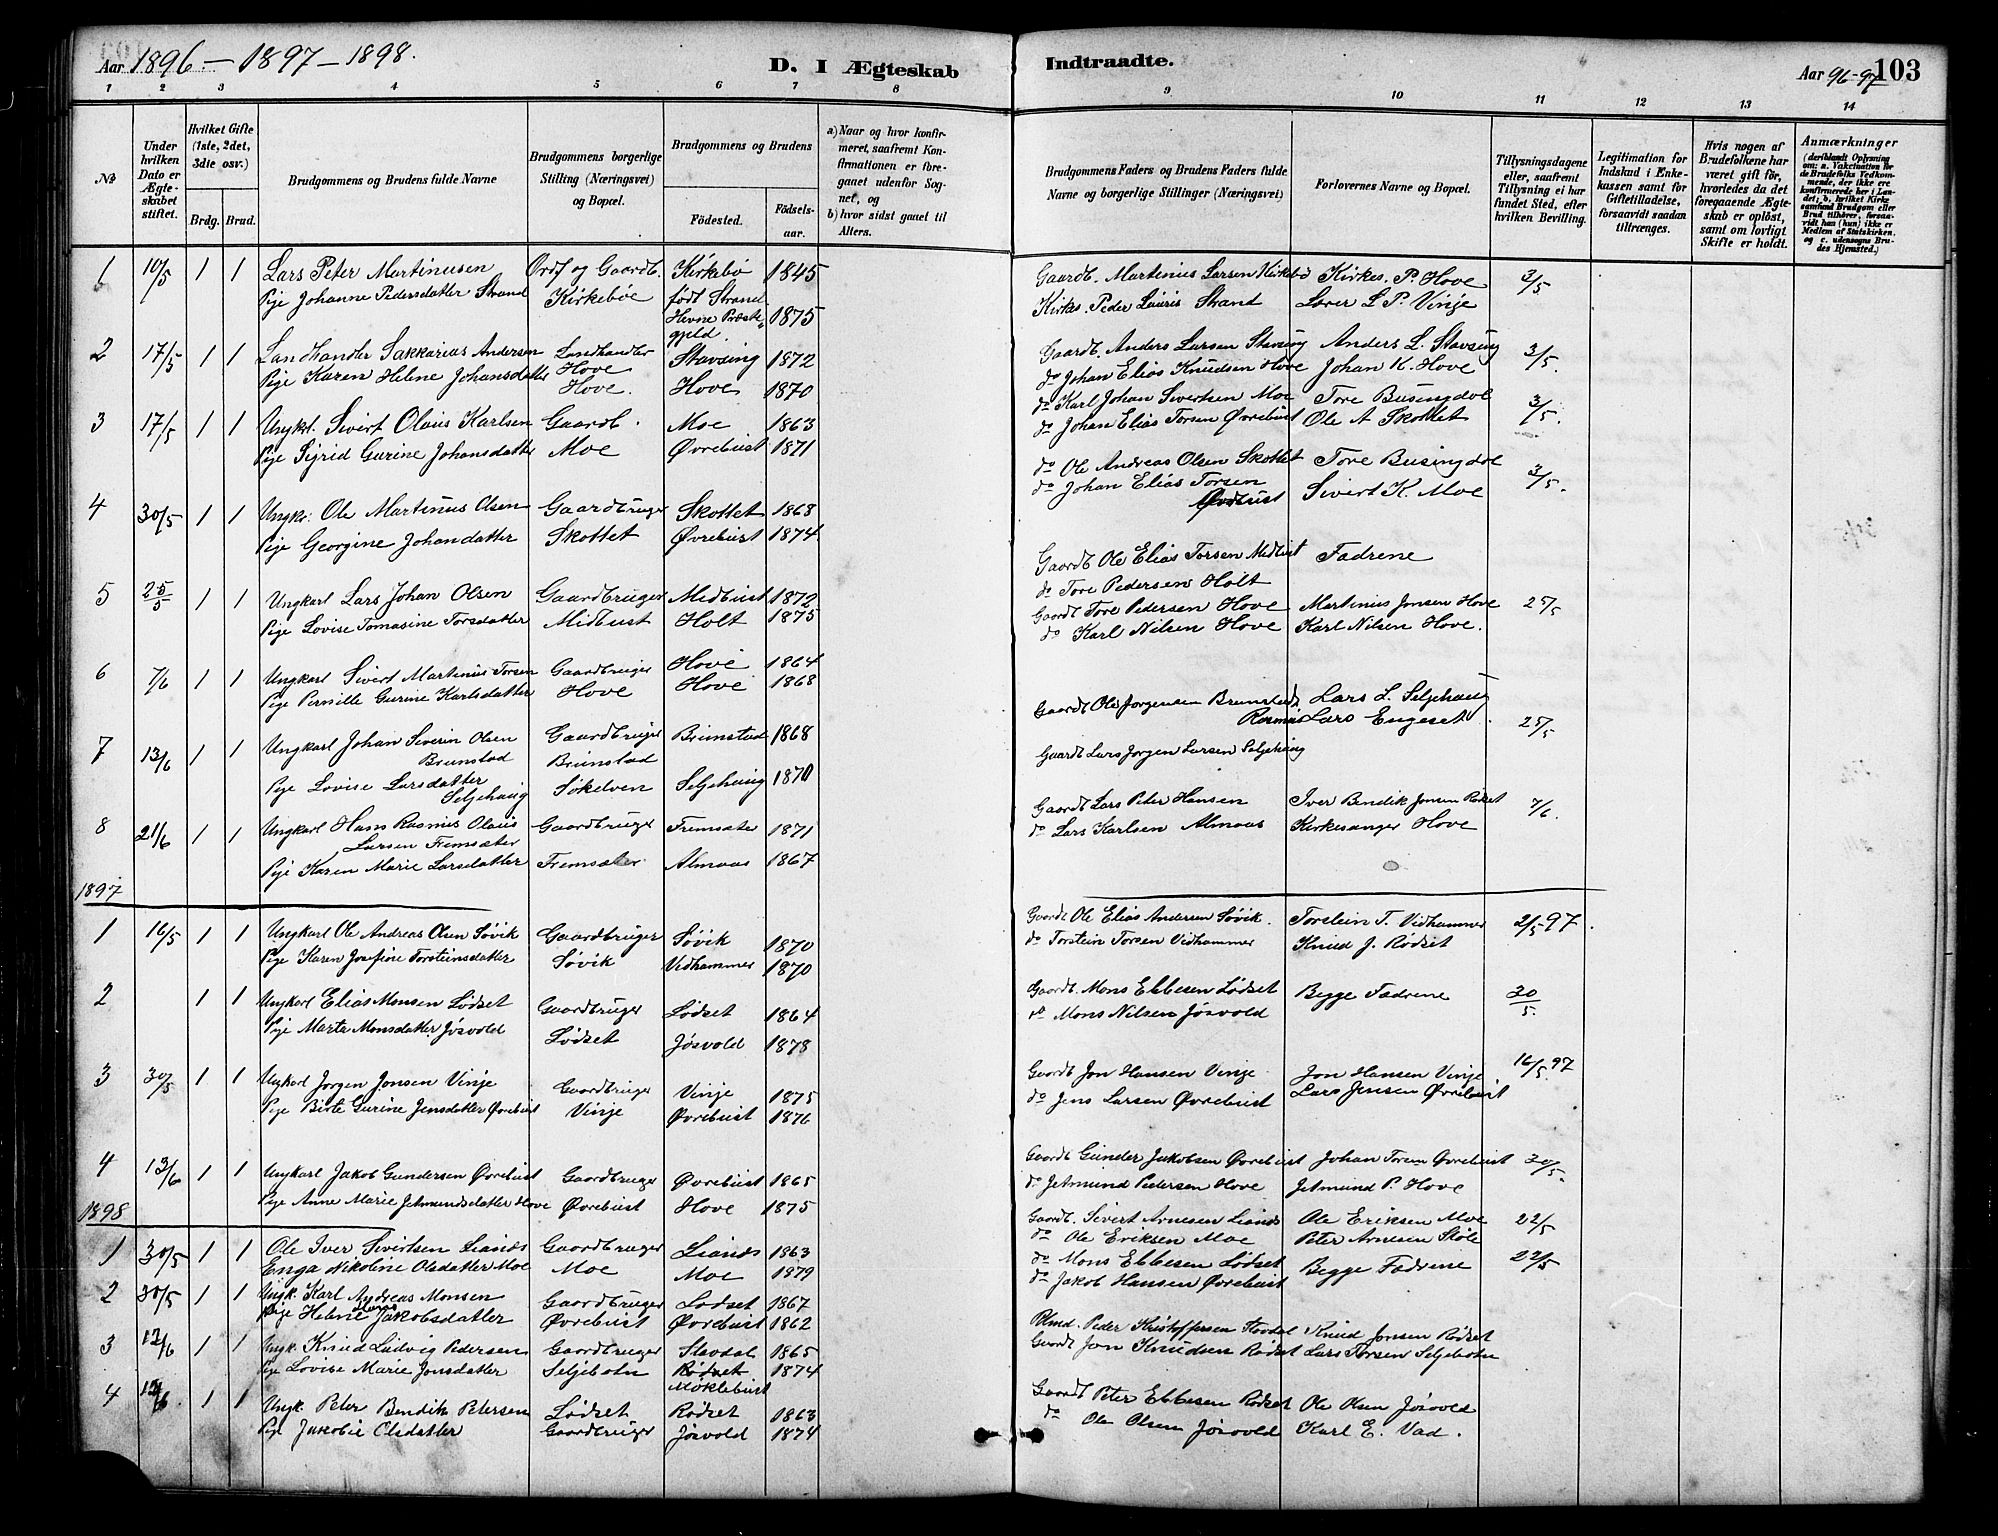 Aar 1896 – 1897 – 1898.
D. I Ægteskab
Indtraadte.
Aar 96-97 103
1 2 3 4 5 6 7 8 9 10 11 12 13 14
№
Under hvilken Dato er Ægteskabet stiftet.
Hvilket Gifte (1ste, 2det, 3die osv.)
Brdg. Brud.
Brudgommens og Brudens fulde Navne
Brudgommens borgerlige Stilling (Næringsvei) og Bopæl.
Brudgommens og Brudens
Fødested. Fødselsaar.
a) Naar og hvor konfirmeret, saafremt Konfirmationen er foregaaet udenfor Sognet, og
b) hvor sidst gaaet til Alters.
Brudgommens Faders og Brudens Faders fulde Navne og borgerlige Stillinger (Næringsvei)
Forlovernes Navne og Bopæl.
Tillysningsdagene eller, saafremt Tillysning ei har fundet Sted, efter hvilken Bevilling.
Legitimation for Indskud i Enkekassen samt for Giftetilladelse, forsaavidt saadan tiltrænges.
Hvis nogen af Brudefolkene har været gift før, hvorledes da det foregaaende Ægteskab er opløst, samt om lovligt Skifte er holdt.
Anmærkninger
(deriblandt Oplysning om: a. Vakcination for de Brudefolks Vedkommende, der ikke ere konfirmerede her i Landet; b. hvilket Kirkesamfund Brudgom eller Brud tilhører, forsaavidt han (hun) ikke er Medlem af Statskirken, og c. udensogns Brudes Hjemsted.)
1 10/5 1 1 Lars Peter Martinusen Ordf og Gaardb. Kirkebø 1845 Gaardb. Martinus Larsen Kirkebø Kirkes. P. Hove 3/5.
Pige Johanne Pedersdatter Strand Kirkebøe født Strand Hevne Præstegjeld 1875 Kirkes. Peder Lauris Strand Lærer L. P. Vinje
2 17/5 1 1 Landhandler Sakkarias Andersen Landhandler Hove Stavseng 1872 Gaardb. Anders Larsen Stavseng Anders L. Stavseng 3/5.
Pige Karen Helene Johansdatter Hove. Hove 1870 do Johan Elias Knudsen Hove Johan K. Hove
3 17/5 1 1 Ungkrl. Sivert Olaus Karlsen Gaardb. Moe 1863 do Karl Johan Sivertsen Moe Tore Busengdal 3/5.
Pige Sigrid Gurine Johansdatter Moe Øvrebust 1871 do Johan Elias Torsen Øvrebust Ole A Skottet
4 30/5 1 1 Ungkr. Ole Martinus Olsen Gaardbruger Skottet 1868 do Ole Andreas Olsen Skottet Tore Busengdal 3/5.
Pige Georgine Johandatter Skottet Øvrebust 1874 do Johan Elias Torsen Øvrebust Sivert K. Moe
5 25/5 1 1 Ungkarl Lars Johan Olsen Gaardbruger Midbust 1872 Gaardb Ole Elias Torsen Midbust Fadrene
Pige Lovise Tomasine Torsdatter Midbust Holt 1875 do Tore Pedersen Holt
6 7/6 1 1 Ungkarl Sivert Martinus Torsen Gaardbruger Hove 1864 Gaardb Tore Pedersen Hove Martinus Jonsen Hove 25/5
Pige Pernille Gurine Karlsdatter Hove Hove 1868 do Karl Nilsen Hove Karl Nilsen Hove.
7 13/6 1 1 Ungkarl Johan Severin Olsen Brunstad Gaardbruger Brunstad Brunstad 1868 Gaardb Ole Jørgensen Brunstad Lars L. Seljehaug 25/5
Rasmus Lars Engeset
Pige Lovise Larsdatter Seljehaug Søkelven Seljehaug 1870 Gaardb Lars Jørgen Larsen Seljehaug
8 21/6 1 1 Ungkarl Hans Rasmus Olaus Larsen Fremsæter Gaardbruger Fremsæter 1871 Gaardb Lars Peter Hansen Iver Bendik Jonsen Rødset 7/6.
Pige Karen Marie Larsdatter Fremsæter Almaas 1867 do Lars Karlsen Almaas Kirkesanger Hove
1897
1 16/5 1 1 Ungkarl Ole Andreas Olsen Søvik Gaardbruger Søvik 1870 Gaardb Ole Elias Andersen Søvik Torstein T. Vidhammer 2/5-97.
Pige Karen Josefine Torsteinsdatter Søvik Vidhammer 1870 do Torstein Torsen Vidhammer Knud J. Rødset
2 1 1 Ungkarl Elias Monsen Lødset Gaardbruger Lødset 1864 Gaardb. Mons Ebbesen Lødset Begge Fædrene 30/5.
Pige Marta Monsdatter Jøsvold Lødset Jøsvold 1878 do Mons Nilsen Jøsvold
3 30/5 1 1 Ungkarl Jørgen Jonsen Vinje Gaardbruger Vinje 1875 Gaardb Jon Hansen Vinje Jon Hansen Vinje 16/5.97
Pige Birte Gurine Jensdatter Øvrebust Vinje Øvrebust 1876 do Jens Larsen Øvrebust Lars Jensen Øvrebust
4 13/6 1 1 Ungkarl Jakob Gundersen Øvrebust Gaardbruger Øvrebust 1865 Gaardb Gunder Jakobsen Øvrebust Johan Torsen Øvrebust 30/5.
Pige Anne Marie Jetmundsdatter Hove Øvrebust Hove 1875 do Jetmund Pedersen Hove Jetmund P. Hove
1898
1 30/5 1 1 Ole Iver Sivertsen Liands Gaardbruger Liands 1863 Gaardb. Sivert Arnesen Liands Ole Eriksen Moe 22/5
Enga Nikoline Olsdatter Moe Moe Moe 1879 do Ole Eriksen Moe Peter Arnesen Støle
2 30/5 1 1 Ungk. Karl Andreas Monsen Gaardbruger Lødset 1867 do Mons Ebbesen Lødset Begge Fædrene 22/5
Pige Helene Lars Jakobsdatter Øvrebust Øvrebust 1862 do Jakob Hansen Øvrebust
3 12/6 1 1 Ungk. Knud Ludvig Pedersen Gaardbruger Stavdal 1865 Peder Kristoffersen Knud Jonsen Rødset
Pige Lovise Marie Jonsdatter Seljebotn Rødset Møklebust 1874 Gaardb Jon Knudsen Rødset Lars Torsen Seljebotn
4 12/6 1 1 Ungk. Peter Bendik Petersen Lødset Rødset 1863 Gaardb Peter Ebbesen Rødset Ole Olsen Jøsvold
Pige Jakobie Olsdatter Gaardbruger Jøsvold 1874 do Ole Olsen Jøsvold Karl E. Vad.